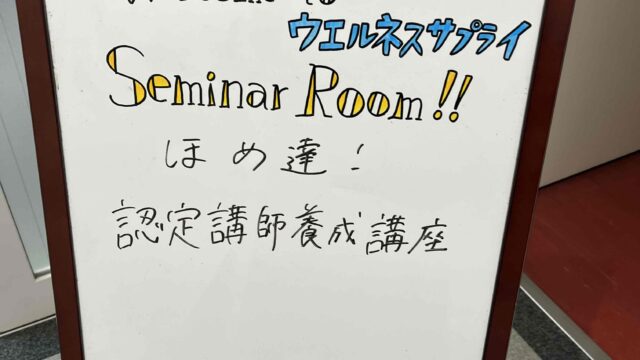 to
ウエルネスサプライ
Seminar Room!!
ほめ達!
認定講師養成講座